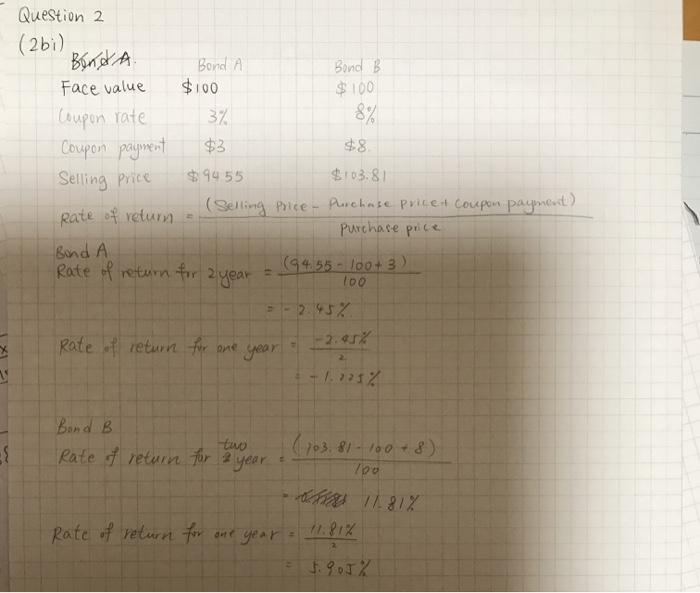 Question 2
(2bi)
Bond A.
Bond A Bond B
Face value $100 $100
Coupon rate 3% 8%
Coupon payment $3 $8
Selling price $94.55 $103.81
Rate of return = (Selling Price - Purchase price + Coupon payment)
Purchase price
Bond A
Rate of return for 2 year = (94.55 - 100 + 3)
100
= -2.45%
Rate of return for one year = -2.45%
2
= -1.225%
Bond B
Rate of return for two year = (103.81 - 100 + 8)
100
= 11.81%
Rate of return for one year = 11.81%
2
= 5.905%